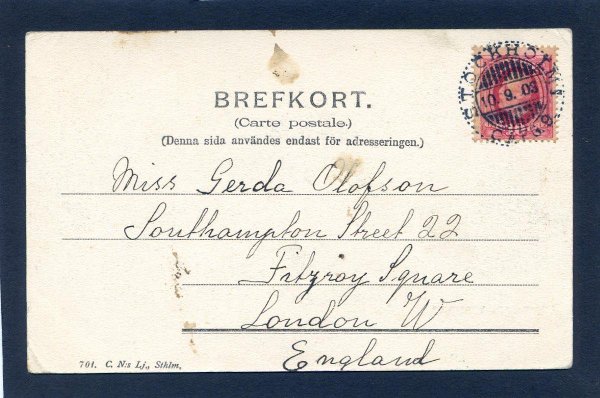 BREFKORT.
(Carte postale.)
(Denna sida användes endast för adresseringen.)
STOCKHOLM 1
10. 9. 03
Miss Gerda Olofson
Southampton Street 22
Fitzroy Square
London W
England
701. C. N:s Lj., Sthlm.